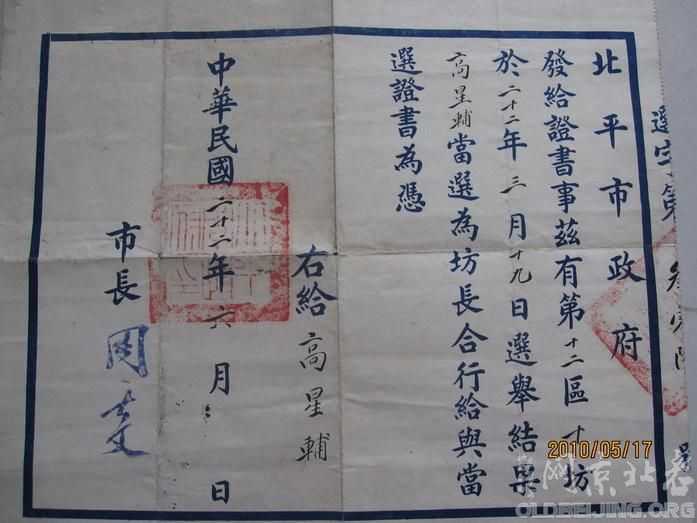 選字第
北平市政府
發給證書事茲有第十二區十坊
於二十二年三月十九日選舉結果
高星輔當選為坊長合行給與當
選證書為憑
右給高星輔
中華民國二十二年六月 日
市長周
2010/05/17
老北京网
OLDBEIJING.ORG